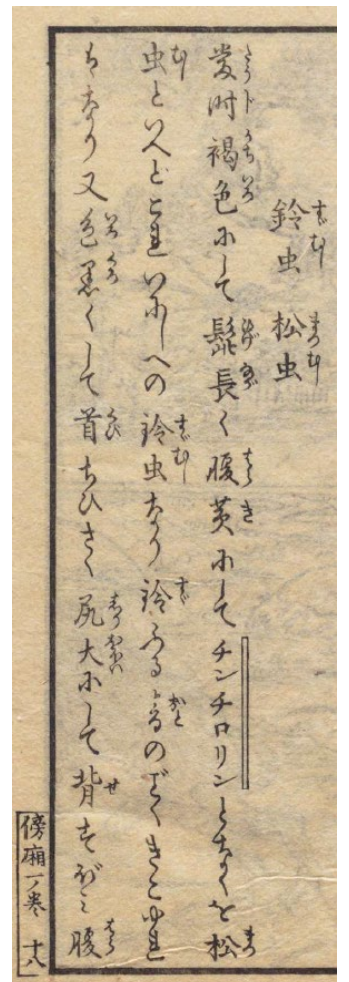 鈴虫 松虫
當時褐色にして髭長く腹黄にしてチンチロリンとなくを松
虫といへどこれいにしへの鈴虫なり鈴ふる音のごくきこゆれ
はなり又色黒くして首ちひさく尻大にして背すぼみ腹
傍廂一ノ巻 十八